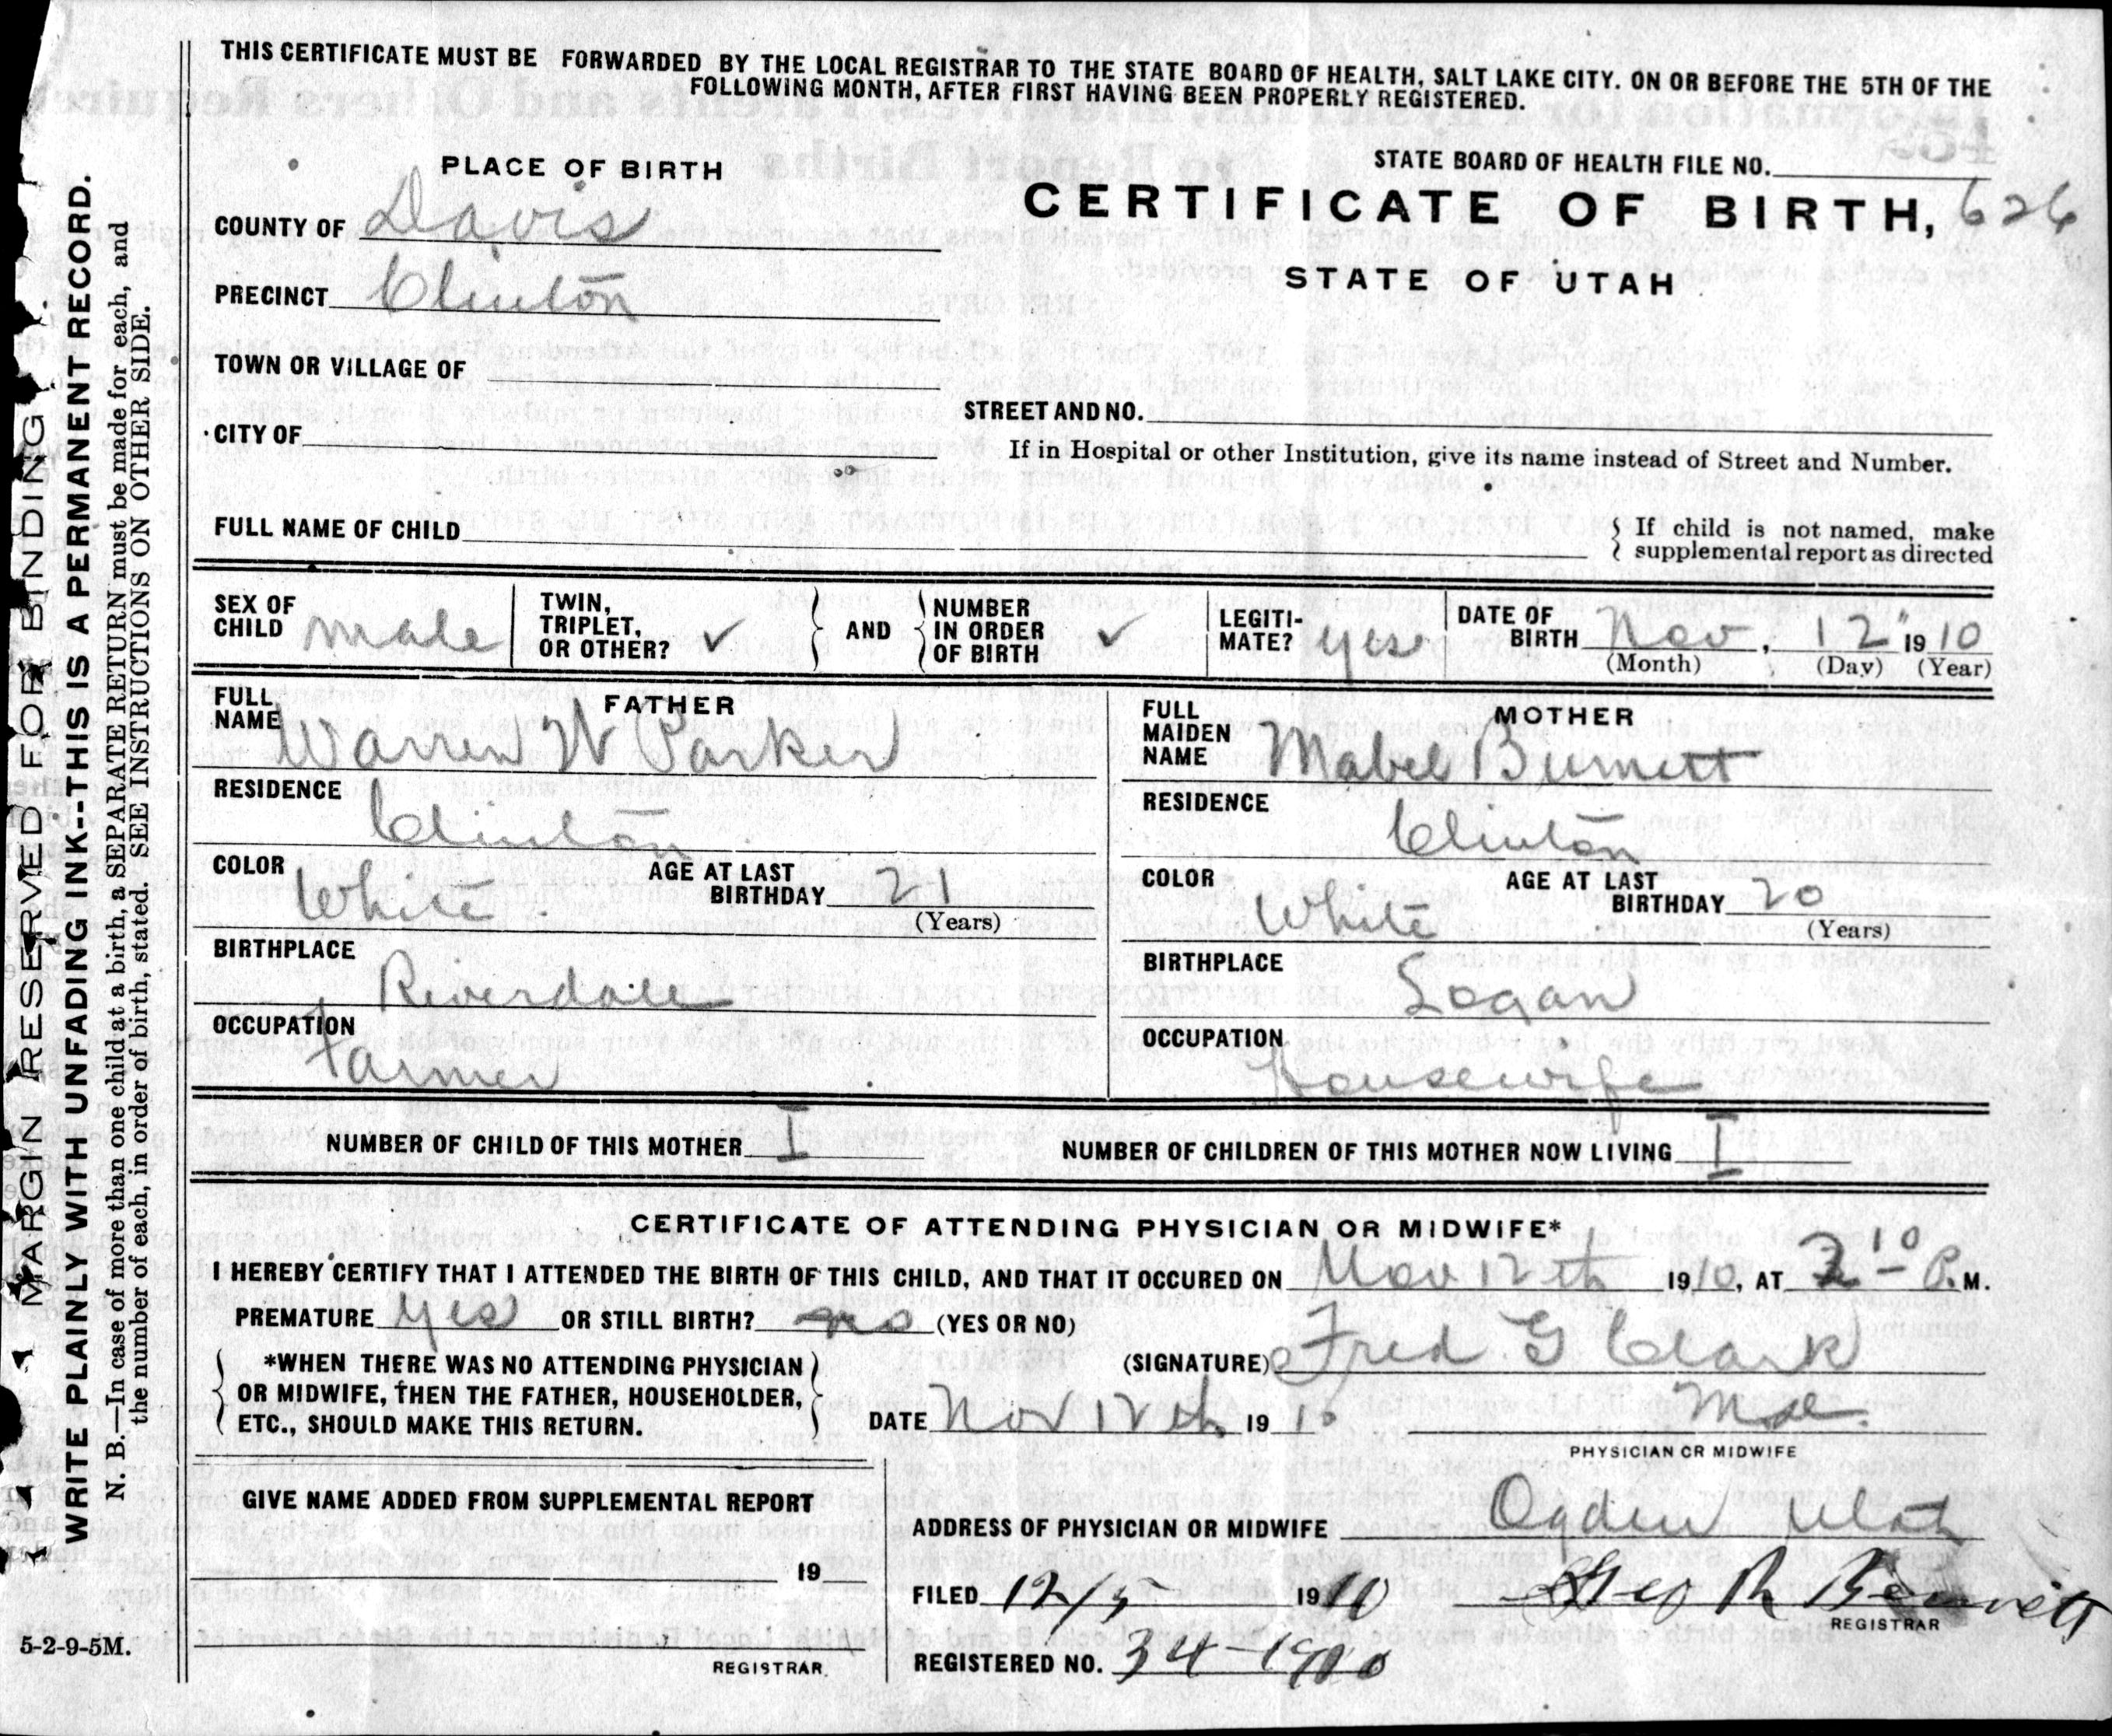 THIS CERTIFICATE MUST BE FORWARDED BY THE LOCAL REGISTRAR TO THE STATE BOARD OF HEALTH, SALT LAKE CITY. ON OR BEFORE THE 5TH OF THE
FOLLOWING MONTH, AFTER FIRST HAVING BEEN PROPERLY REGISTERED.
PLACE OF BIRTH
STATE BOARD OF HEALTH FILE NO.
COUNTY OF Davis
CERTIFICATE OF BIRTH, 626
PRECINCT Clinton
STATE OF UTAH
TOWN OR VILLAGE OF
STREET AND NO.
CITY OF
If in Hospital or other Institution, give its name instead of Street and Number.
FULL NAME OF CHILD
{ If child is not named, make
supplemental report as directed
SEX OF CHILD male
TWIN, TRIPLET, OR OTHER? ✓
} AND {
NUMBER IN ORDER OF BIRTH ✓
LEGITI-MATE? yes
DATE OF BIRTH Nov, 12" 1910
(Month) (Day) (Year)
FATHER
FULL NAME Warren W Parker
RESIDENCE Clinton
COLOR White
AGE AT LAST BIRTHDAY 21
(Years)
BIRTHPLACE Riverdale
OCCUPATION Farmer
MOTHER
FULL MAIDEN NAME Mabel Burnett
RESIDENCE Clinton
COLOR White
AGE AT LAST BIRTHDAY 20
(Years)
BIRTHPLACE Logan
OCCUPATION Housewife
NUMBER OF CHILD OF THIS MOTHER I
NUMBER OF CHILDREN OF THIS MOTHER NOW LIVING I
CERTIFICATE OF ATTENDING PHYSICIAN OR MIDWIFE*
I HEREBY CERTIFY THAT I ATTENDED THE BIRTH OF THIS CHILD, AND THAT IT OCCURED ON Nov 12th 1910, AT 2-10 P.M.
PREMATURE yes OR STILL BIRTH? no (YES OR NO)
{ *WHEN THERE WAS NO ATTENDING PHYSICIAN
OR MIDWIFE, THEN THE FATHER, HOUSEHOLDER,
ETC., SHOULD MAKE THIS RETURN. }
(SIGNATURE) Fred G Clark
DATE Nov 12th 1910
PHYSICIAN OR MIDWIFE
GIVE NAME ADDED FROM SUPPLEMENTAL REPORT
19
REGISTRAR.
ADDRESS OF PHYSICIAN OR MIDWIFE Ogden Utah
FILED 12/5 1910 Geo R Bennett
REGISTRAR
REGISTERED NO. 34-1910
5-2-9-5M.
MARGIN RESERVED FOR BINDING.
WRITE PLAINLY WITH UNFADING INK--THIS IS A PERMANENT RECORD.
N. B.—In case of more than one child at a birth, a SEPARATE RETURN must be made for each, and
the number of each, in order of birth, stated. SEE INSTRUCTIONS ON OTHER SIDE.